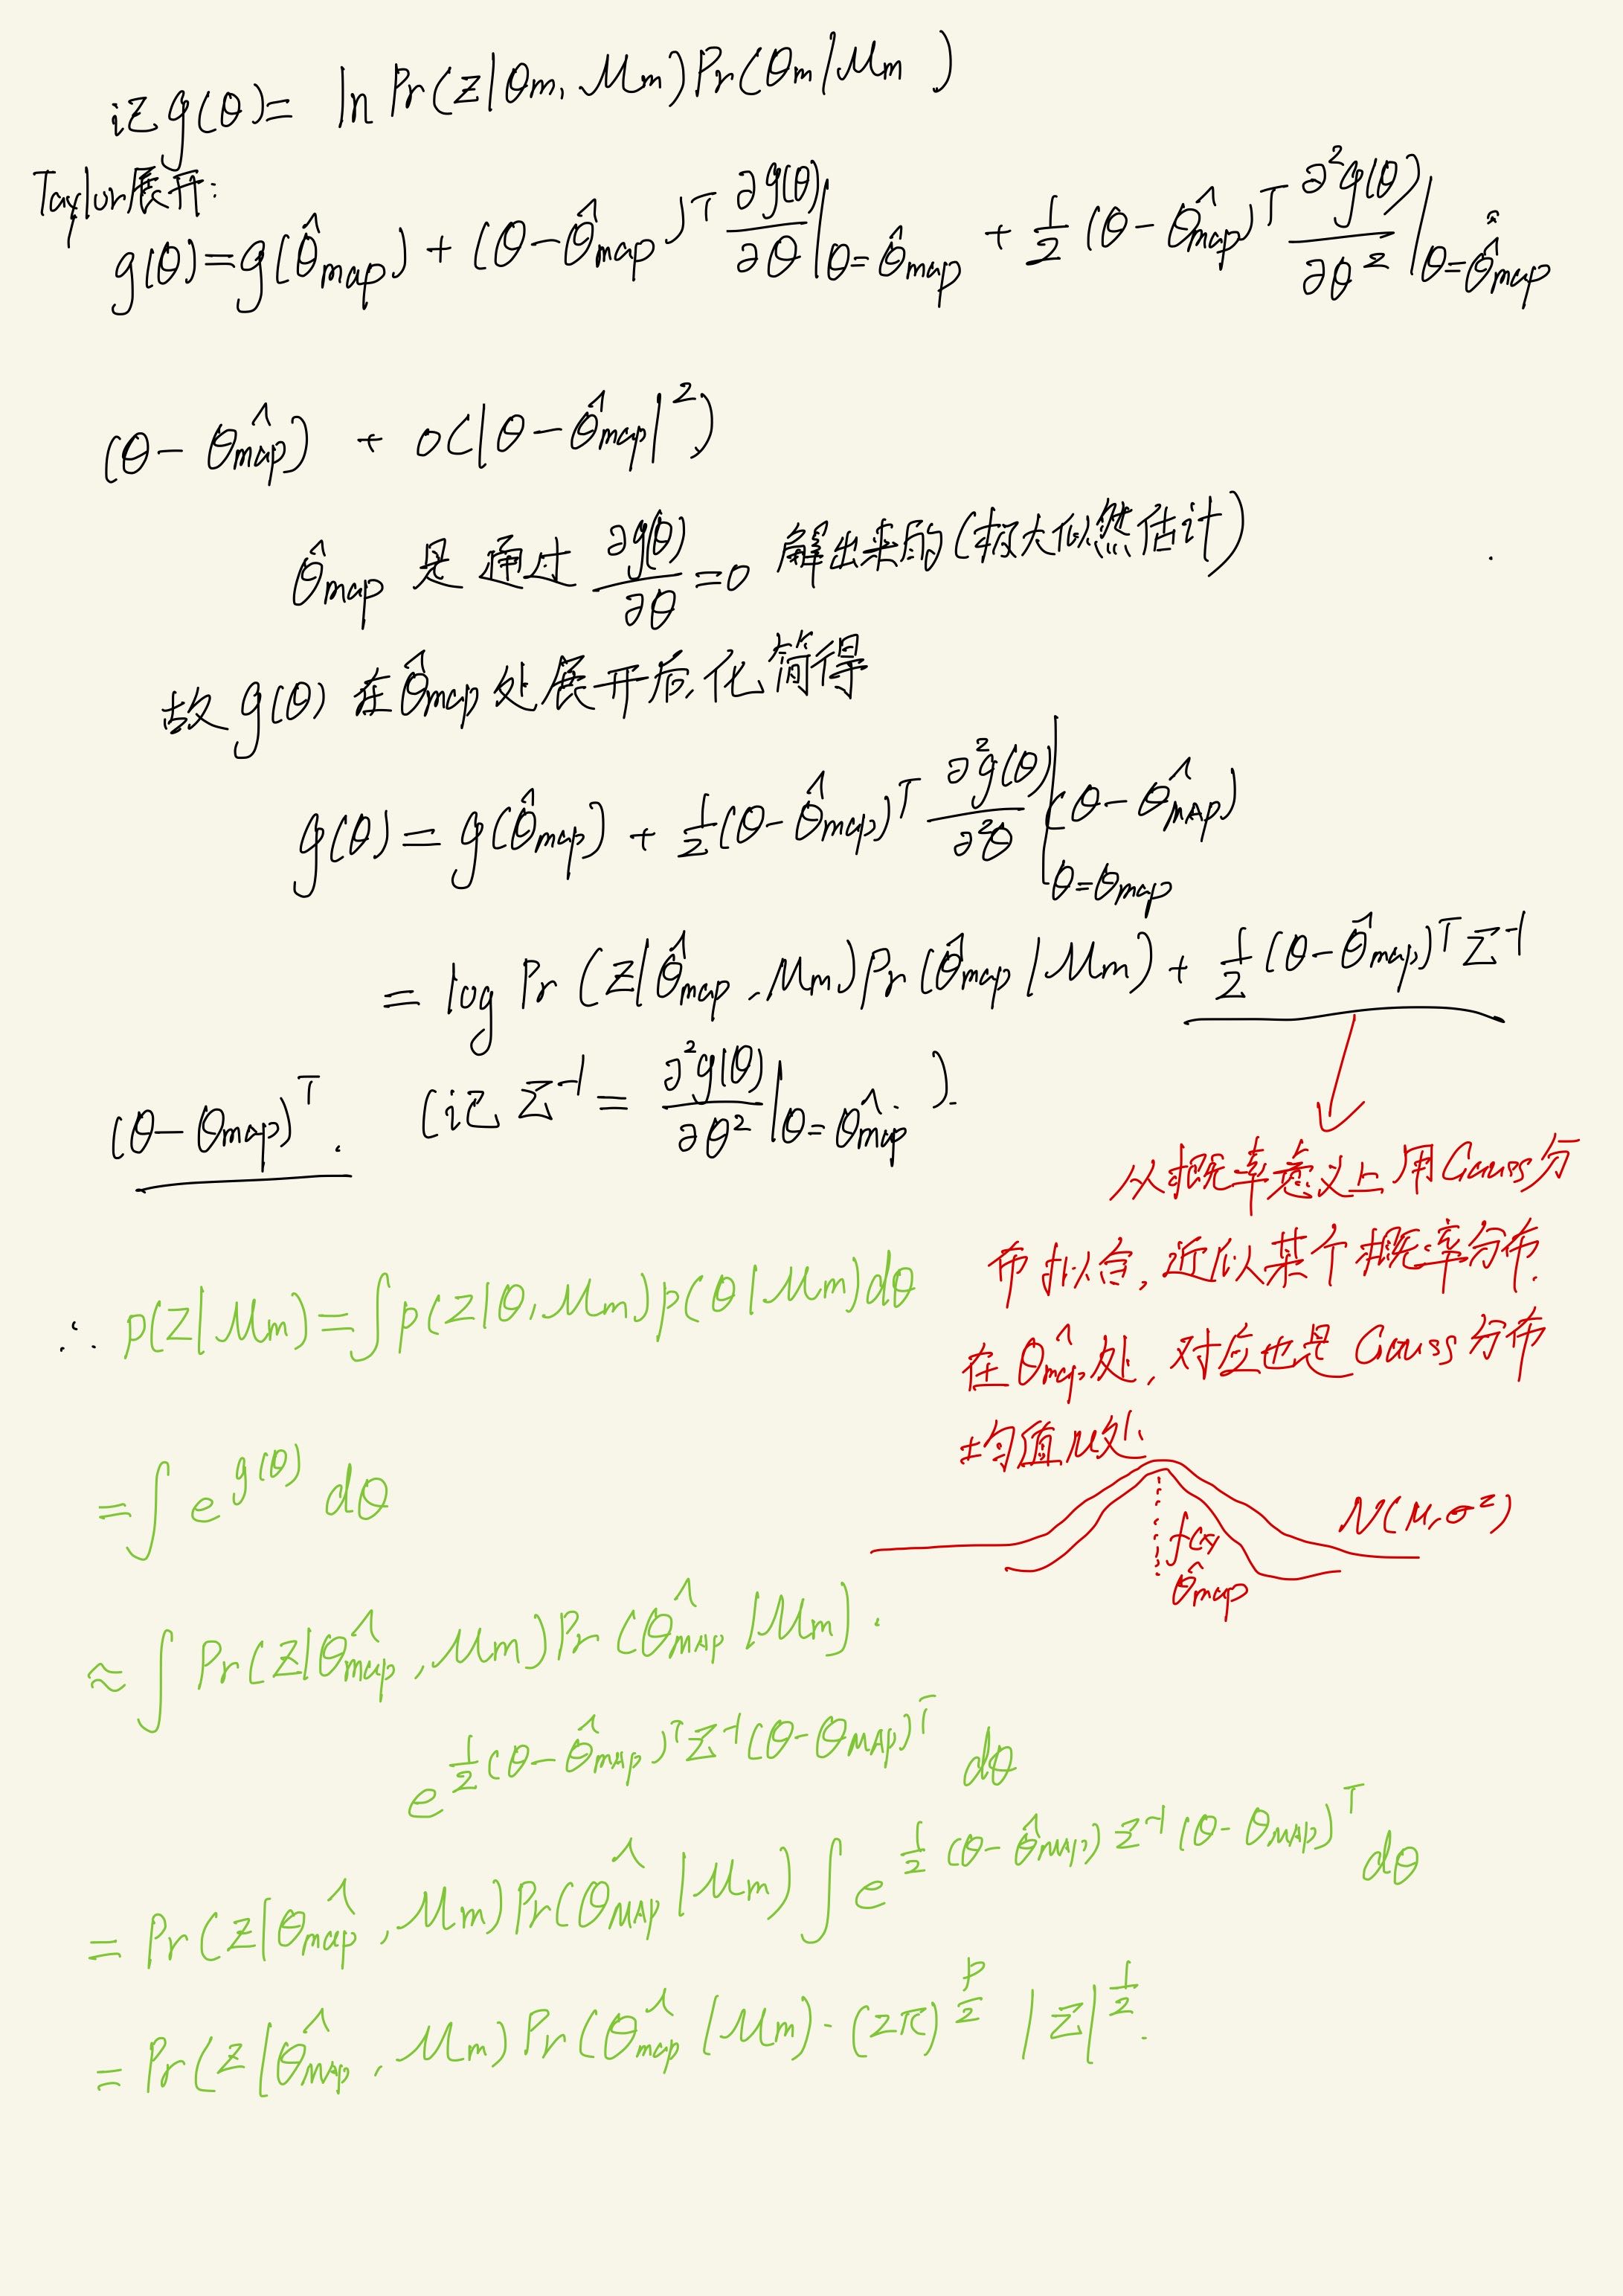 记 g(θ) = ln Pr(Z|θm, Mm)Pr(θm|Mm )
Taylor展开:
g(θ)=g(θ̂map) + (θ-θ̂map)ᵀ ∂g(θ)/∂θ |θ=θ̂map + 1/2 (θ-θ̂map)ᵀ ∂²g(θ)/∂θ² |θ=θ̂map
(θ-θ̂map) + o(|θ-θ̂map|²)
θ̂map 是通过 ∂g(θ)/∂θ =0 解出来的(极大似然估计)
故 g(θ) 在θ̂map处展开后,化简得
g(θ) = g(θ̂map) + 1/2(θ-θ̂map)ᵀ ∂²g(θ)/∂²θ |θ=θmap (θ-θ̂MAP)
= log Pr (Z|θ̂map, Mm)Pr(θ̂map|Mm) + 1/2 (θ-θ̂map)ᵀ Σ⁻¹
(θ-θmap)ᵀ. (记 Σ⁻¹ = ∂²g(θ)/∂θ² |θ=θ̂map ).
从概率意义上用Gauss分
布拟合,近似某个概率分布.
在θ̂map处,对应也是Gauss分布
均值μ处
N(μ,σ²)
f(x)
θ̂map
∴ p(Z|Mm)=∫p(Z|θ,Mm)p(θ|Mm)dθ
=∫ e^g(θ) dθ
≈∫ Pr(Z|θ̂map, Mm)Pr(θ̂MAP|Mm).
e^1/2(θ-θ̂MAP)ᵀΣ⁻¹(θ-θMAP)ᵀ dθ
= Pr(Z|θ̂map, Mm)Pr(θ̂MAP|Mm) ∫e^1/2(θ-θ̂MAP)Σ⁻¹(θ-θMAP)ᵀ dθ
= Pr(Z|θ̂MAP, Mm)Pr(θ̂map|Mm)·(2π)^p/2 |Σ|^1/2.